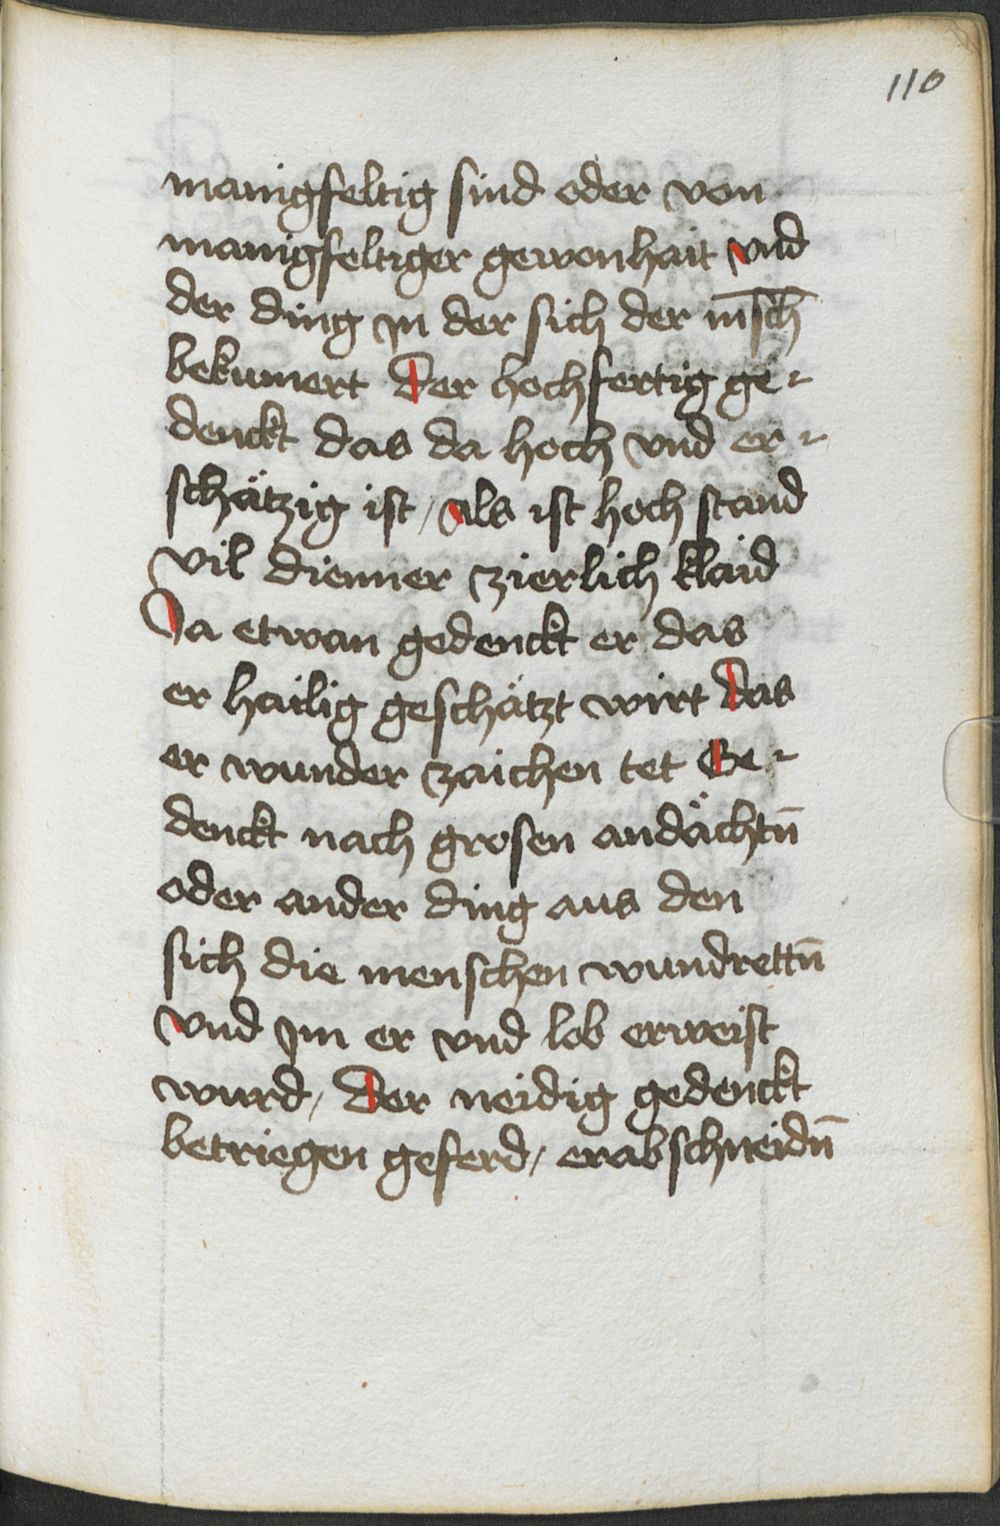 110
manigfeltig sind oder von
manigfeltiger gewonhait vnd
der ding in der sich der m̅sch
bekumert Der hochfertig ge-
denckt das da hoch vnd er-
schätzig ist / als ist hoch stand
vil dienner zierlich klaid
Ja etwan gedenckt er das
er hailig geschätzt wirt Das
er wunder zaichen tet Ge-
denckt nach grosen andächtn̄
oder ander ding aus den
sich die menschen wundrettn̄
vnd Im er vnd lob erweist
wurd / Der neidig gedenckt
betriegen geferd / erabschneidn̄